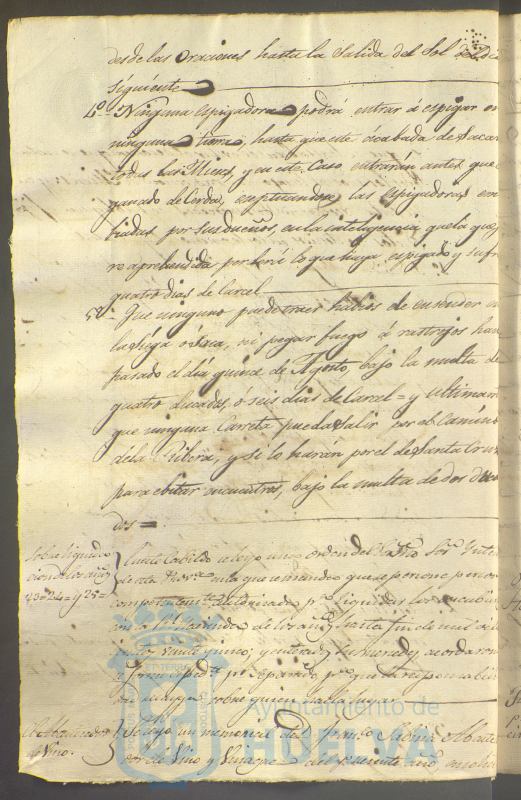 desde las Oraciones hasta la Salida del Sol del dia
Siguiente
4º Ninguna espigadora podrá entrar á espigar en
ninguna tierra, hasta que este acabada de sacar
todas las Mieses, y en este Caso entrarán antes que
ganado de Cerda, exceptuandose las espigadoras em
biadas por sus dueños, en la inteligencia, que la que
re aprehendida perderá lo que haya espigado y sufr
quatro dias de Carcel
5º Que ninguno puede traer habios de encender en
la siega ó saca, ni pegar fuego á rastrojos has
pasado el dia quince de Agosto, bajo la multa de
quatro ducados, ó seis dias de Carcel = y Ultimam
que ninguna Carreta pueda salir por el Camino
de la Ribera, y si lo harán por el de Santa Cruz
para evitar encuentros, bajo la multa de dos duca
dos =
Sobre liquida
cion de los años
23=24=y 25=
En este Cabildo se leyo una orden del Sor Inten
de esta Provª en la que
competentemte autorizado pª liquidar los
con la Rl Hacienda de los años hasta fin de mil ochº
cientos veinte y cinco, y enterados sus mercedes acordaron
se forme expedte por separado pª que la responsabili
El Abastecedor
de Vino.
Se leyo un memorial de Franco Sabina Abaste
cedor de Vino y Vinagre del presente año
Ayuntamiento de
HUELVA